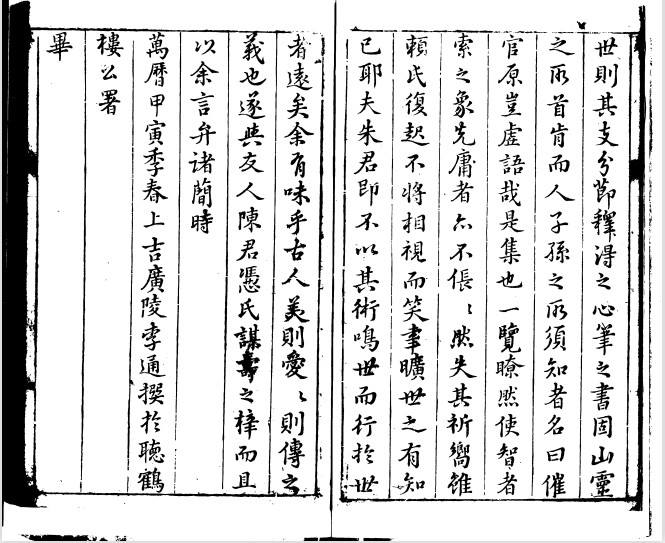 世則其支分節釋淂之心筆之書固山靈
之所首肯而人子孫之所須知者名曰催
官原豈虛語哉是集也一覽瞭然使智者
索之象先庸者亦不倀〻然失其祈嚮雖
賴氏復起不將相視而笑事曠世之有知
已耶夫朱君即不以其術鳴世而行於世
者遠矣余有味乎古人美則愛〻則傳之
義也遂與友人陳君憑氏謀壽之梓而且
以余言弁诸簡時
萬曆甲寅季春上吉廣陵李通撰扵聴鶴
樓公署
畢